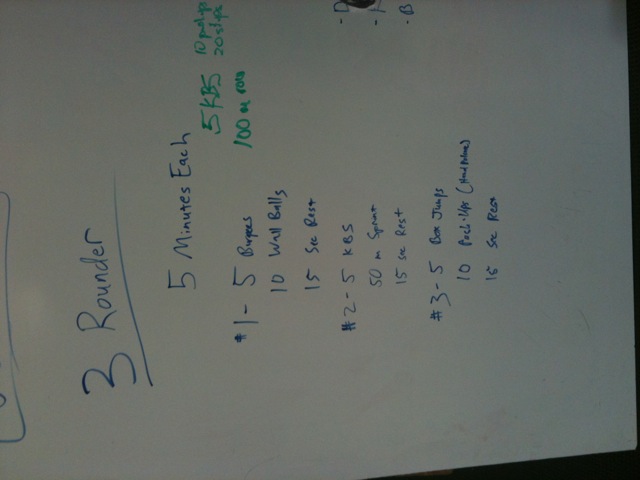 3 Rounder
5 Minutes Each
5 KBS
100 m row
10 push-ups
20 situps
#1 - 5 Burpees
10 Wall Balls
15 Sec Rest
#2 - 5 KBS
50 m Sprint
15 sec Rest
#3 - 5 Box Jumps
10 Push-Ups (Hand Release)
15 Sec Rest
- B